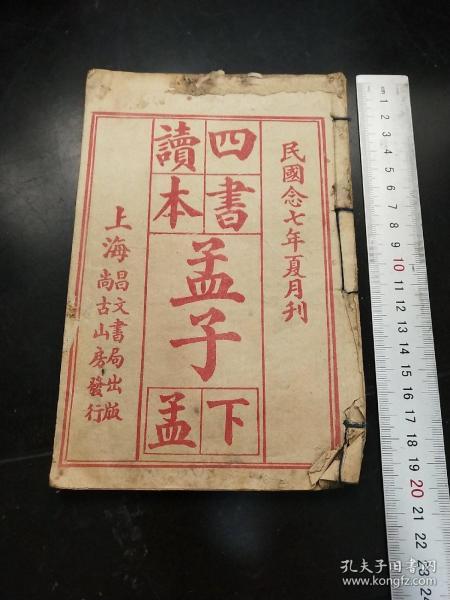 民國念七年夏月刊
四書
讀本
孟子
下
孟
上海
昌文書局出版
尚古山房發行
cm
1
2
3
4
5
6
7
8
9
10
11
12
13
14
15
16
17
18
19
20
21
22
23
24
孔夫子旧书网
www.kongfz.com